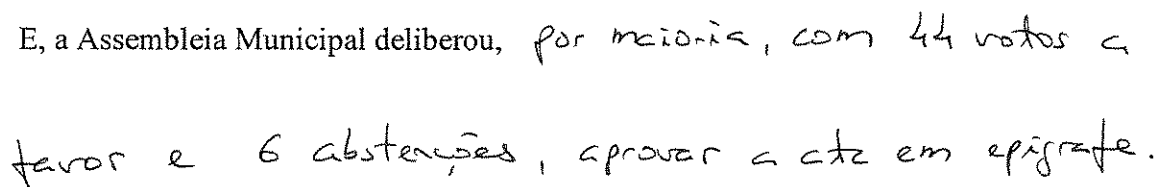 E, a Assembleia Municipal deliberou, por maioria, com 44 votos a
favor e 6 abstenções, aprovar a ata em epígrafe.